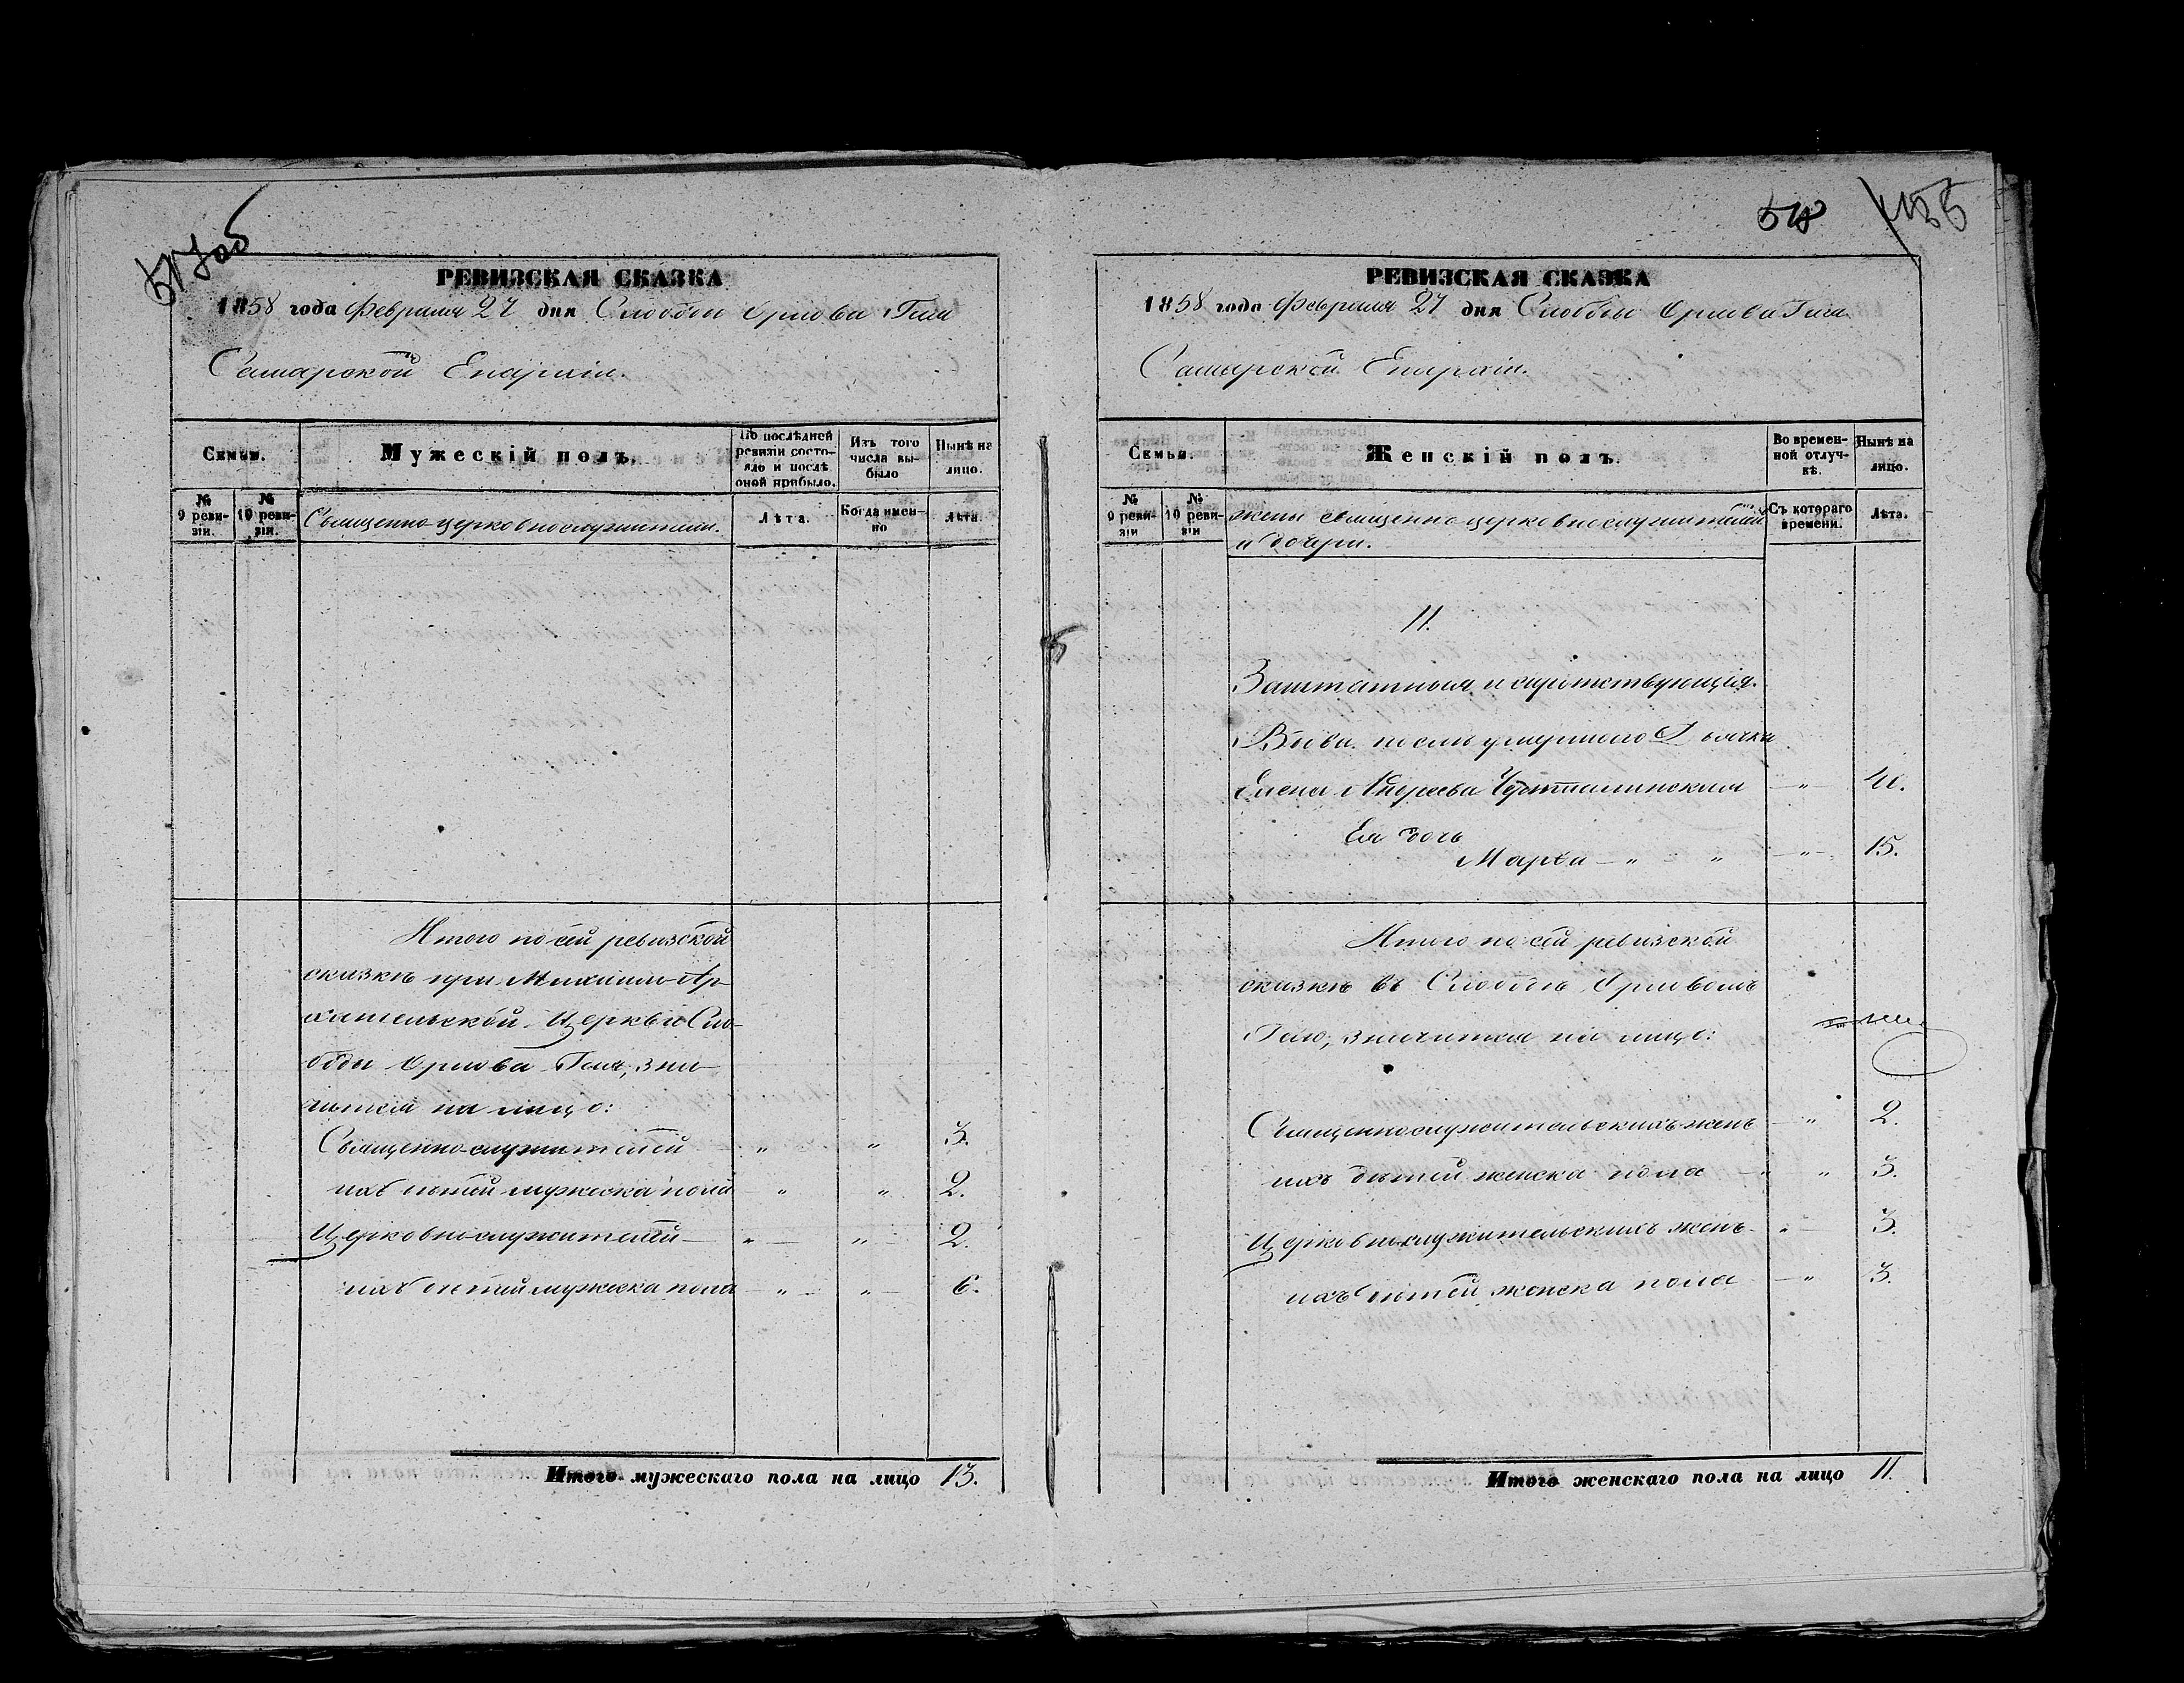 517об
РЕВИЗСКАЯ СКАЗКА
1858 года Февраля 27 дня Слободы Орлова Гая
Самарской Епархіи.
Семьи.
Мужескій полъ.
По послѣдней ревизіи состояло и послѣ оной прибыло.
Изъ того числа выбыло
Нынѣ на лицо.
№ 9 ревизіи.
№ 10 ревизіи.
Священно-церковнослужители.
Лѣта.
Когда именно
Лѣта.
Итого по сей ревизской
сказкѣ при Михаило-Ар-
хангельской Церкви Сло-
боды Орлова Гая, зна-
чится на лицо:
Священно-служителей " " 3.
ихъ дѣтей мужеска пола " " 2.
Церковно-служителей " " 2.
ихъ дѣтей мужеска пола " " 6.
Итого мужескаго пола на лицо 13.
518
РЕВИЗСКАЯ СКАЗКА
1858 года Февраля 27 дня Слободы Орлова Гая
Самарской Епархіи.
Семьи.
Женскій полъ.
Во временной отлучкѣ.
Нынѣ на лицо.
№ 9 ревизіи
№ 10 ревизіи
жены священно-церковнослужителей
и дочери.
Съ котораго времени.
Лѣта.
11.
Заштатныя и сиротствующія.
Вдова послѣ умершаго Дьячка
Елена Андреева "
Ея дочь
Марѳа " " " 15.
Итого по сей ревизской
сказкѣ въ Слободѣ Орловомъ
Гаю, значится на лицо:
Священнослужительскихъ женъ " 2.
ихъ дѣтей женска пола " " 3.
Церковнослужительскихъ женъ " 3.
ихъ дѣтей женска пола " 3.
Итого женскаго пола на лицо 11.